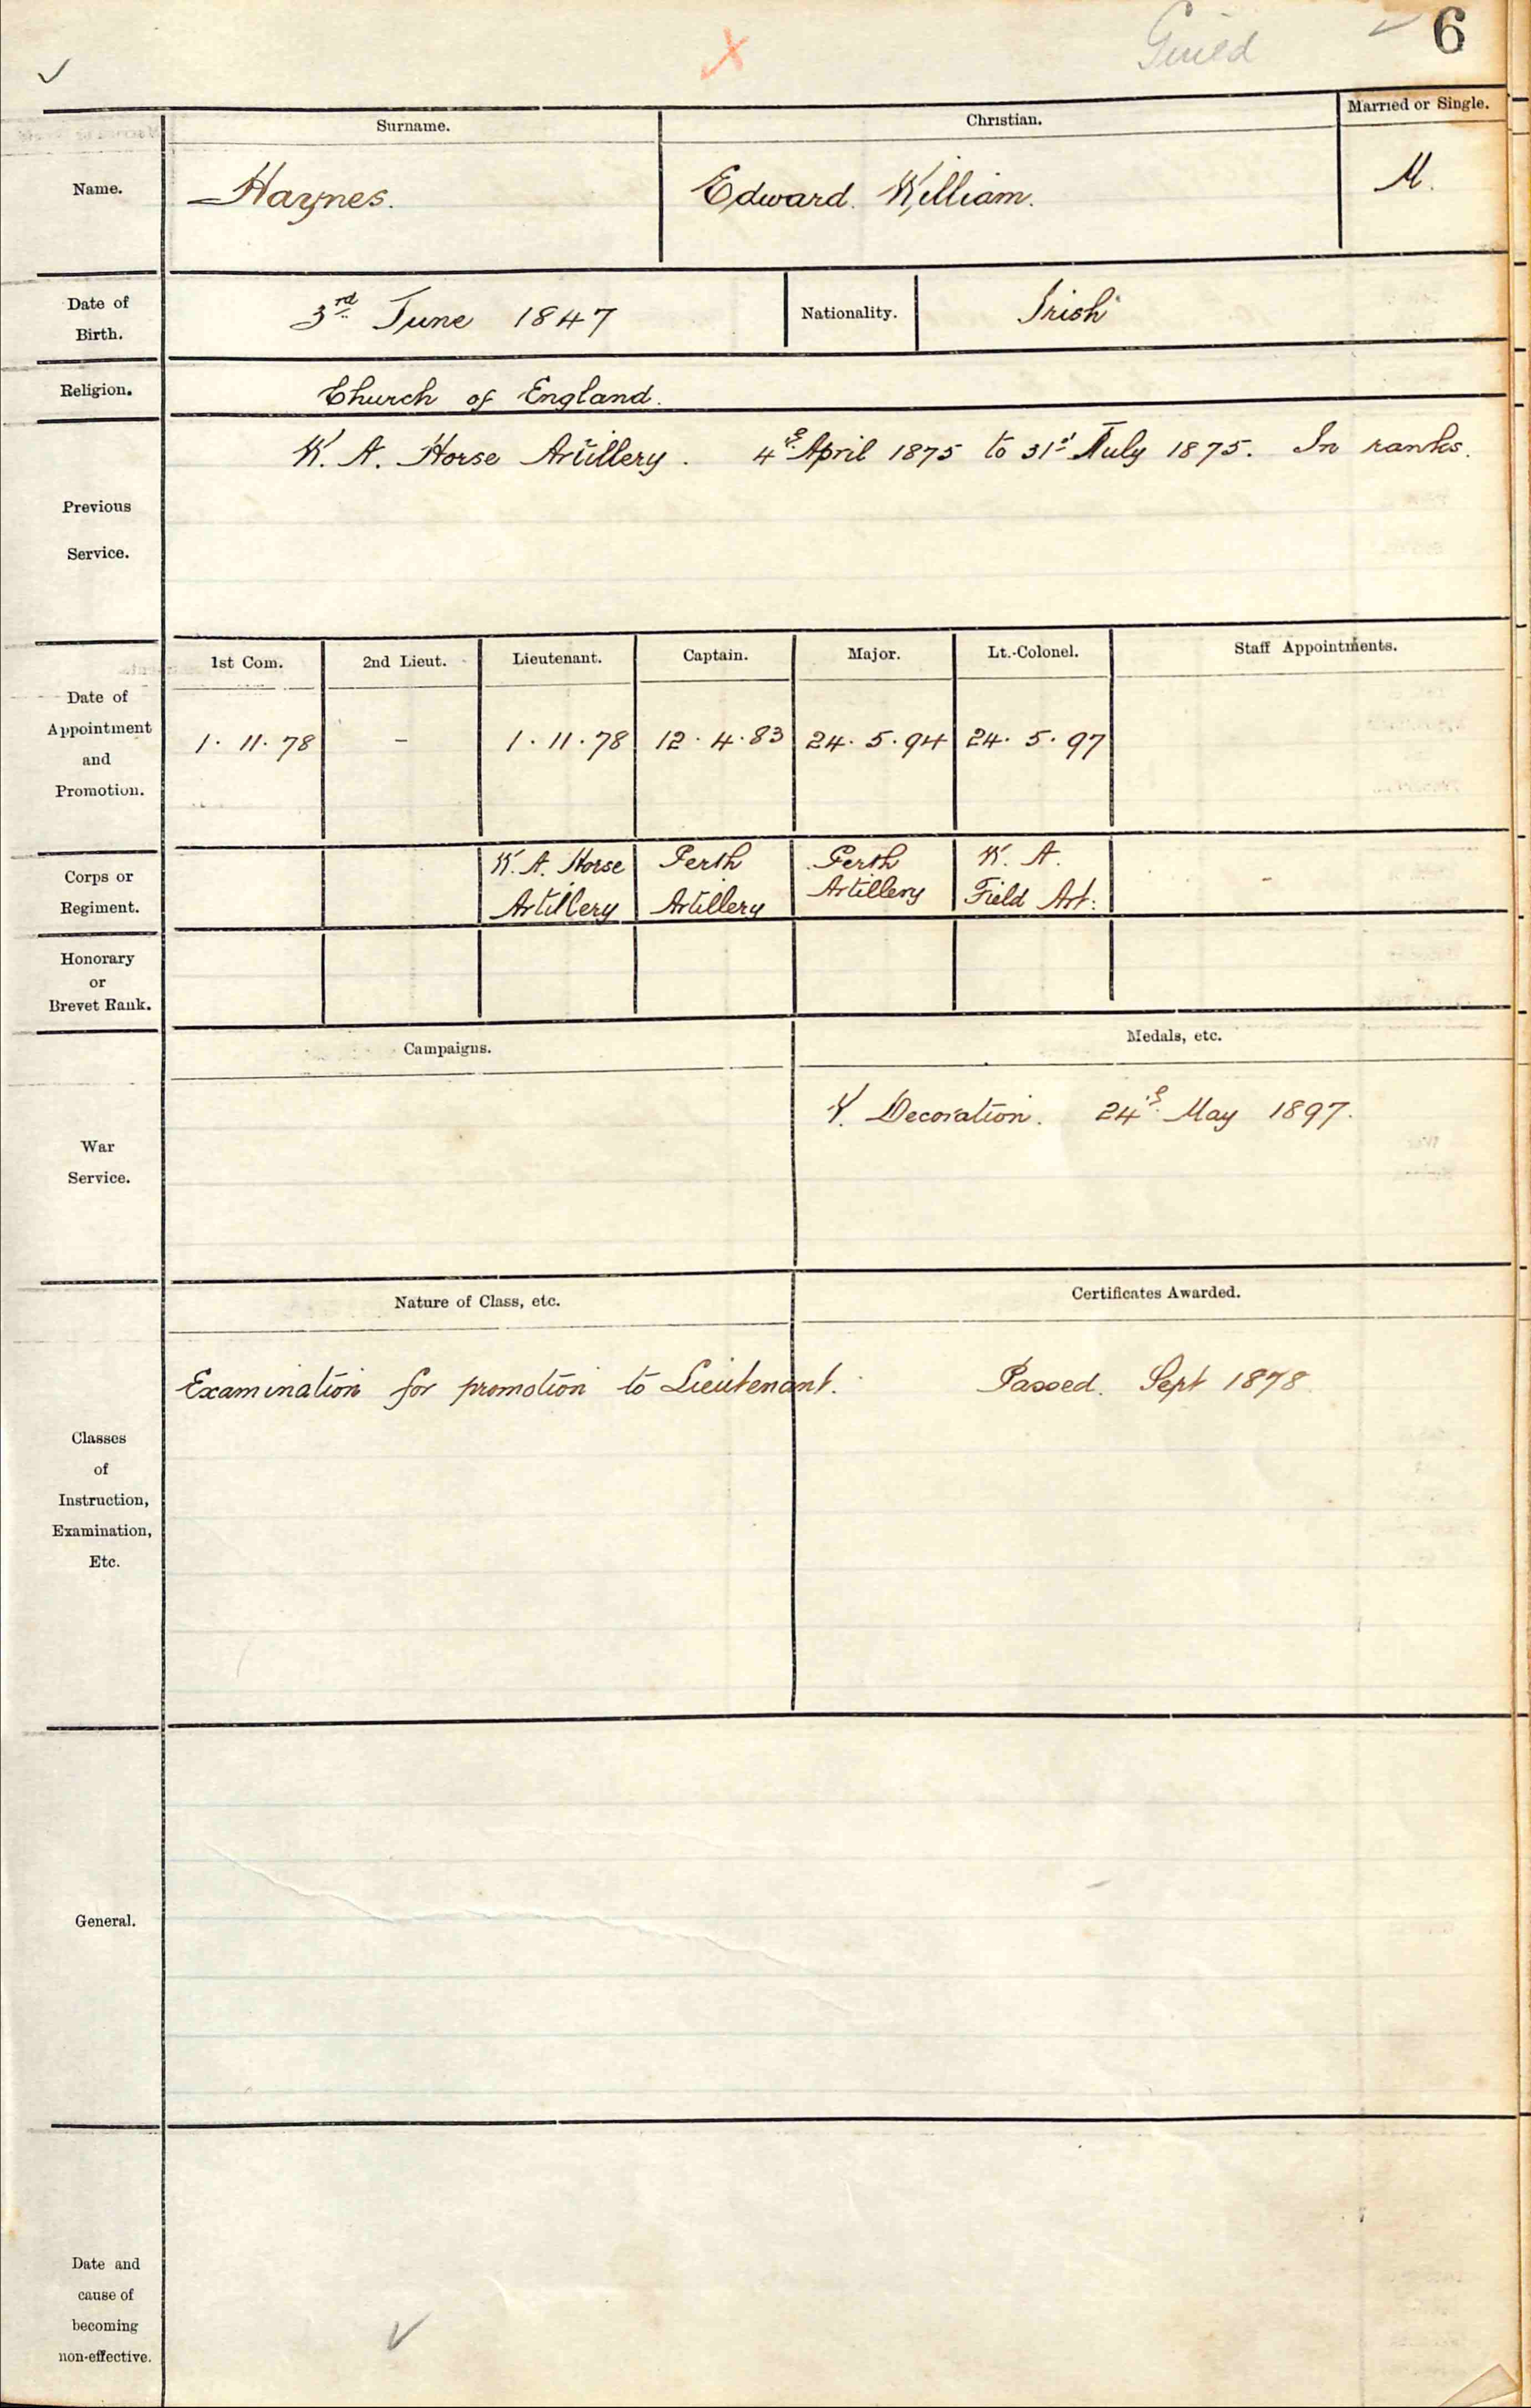 Guild 6
Surname. Christian. Married or Single.
Name. Haynes. Edward. William. M.
Date of Birth. 3rd June 1847 Nationality. Irish
Religion. Church of England.
W. A. Horse Artillery. 4th April 1875 to 31st July 1875. In ranks.
Previous
Service.
1st Com. 2nd Lieut. Lieutenant. Captain. Major. Lt.-Colonel. Staff Appointments.
Date of
Appointment
and
Promotion.
1. 11. 78 - 1. 11. 78 12. 4. 83 24. 5. 94 24. 5. 97
Corps or
Regiment.
W. A. Horse Perth Perth W. A.
Artillery Artillery Artillery Field Art: -
Honorary
or
Brevet Rank.
Campaigns. Medals, etc.
V. Decoration. 24th May 1897.
War
Service.
Nature of Class, etc. Certificates Awarded.
Examination for promotion to Lieutenant. Passed. Sept 1878
Classes
of
Instruction,
Examination,
Etc.
General.
Date and
cause of
becoming
non-effective.